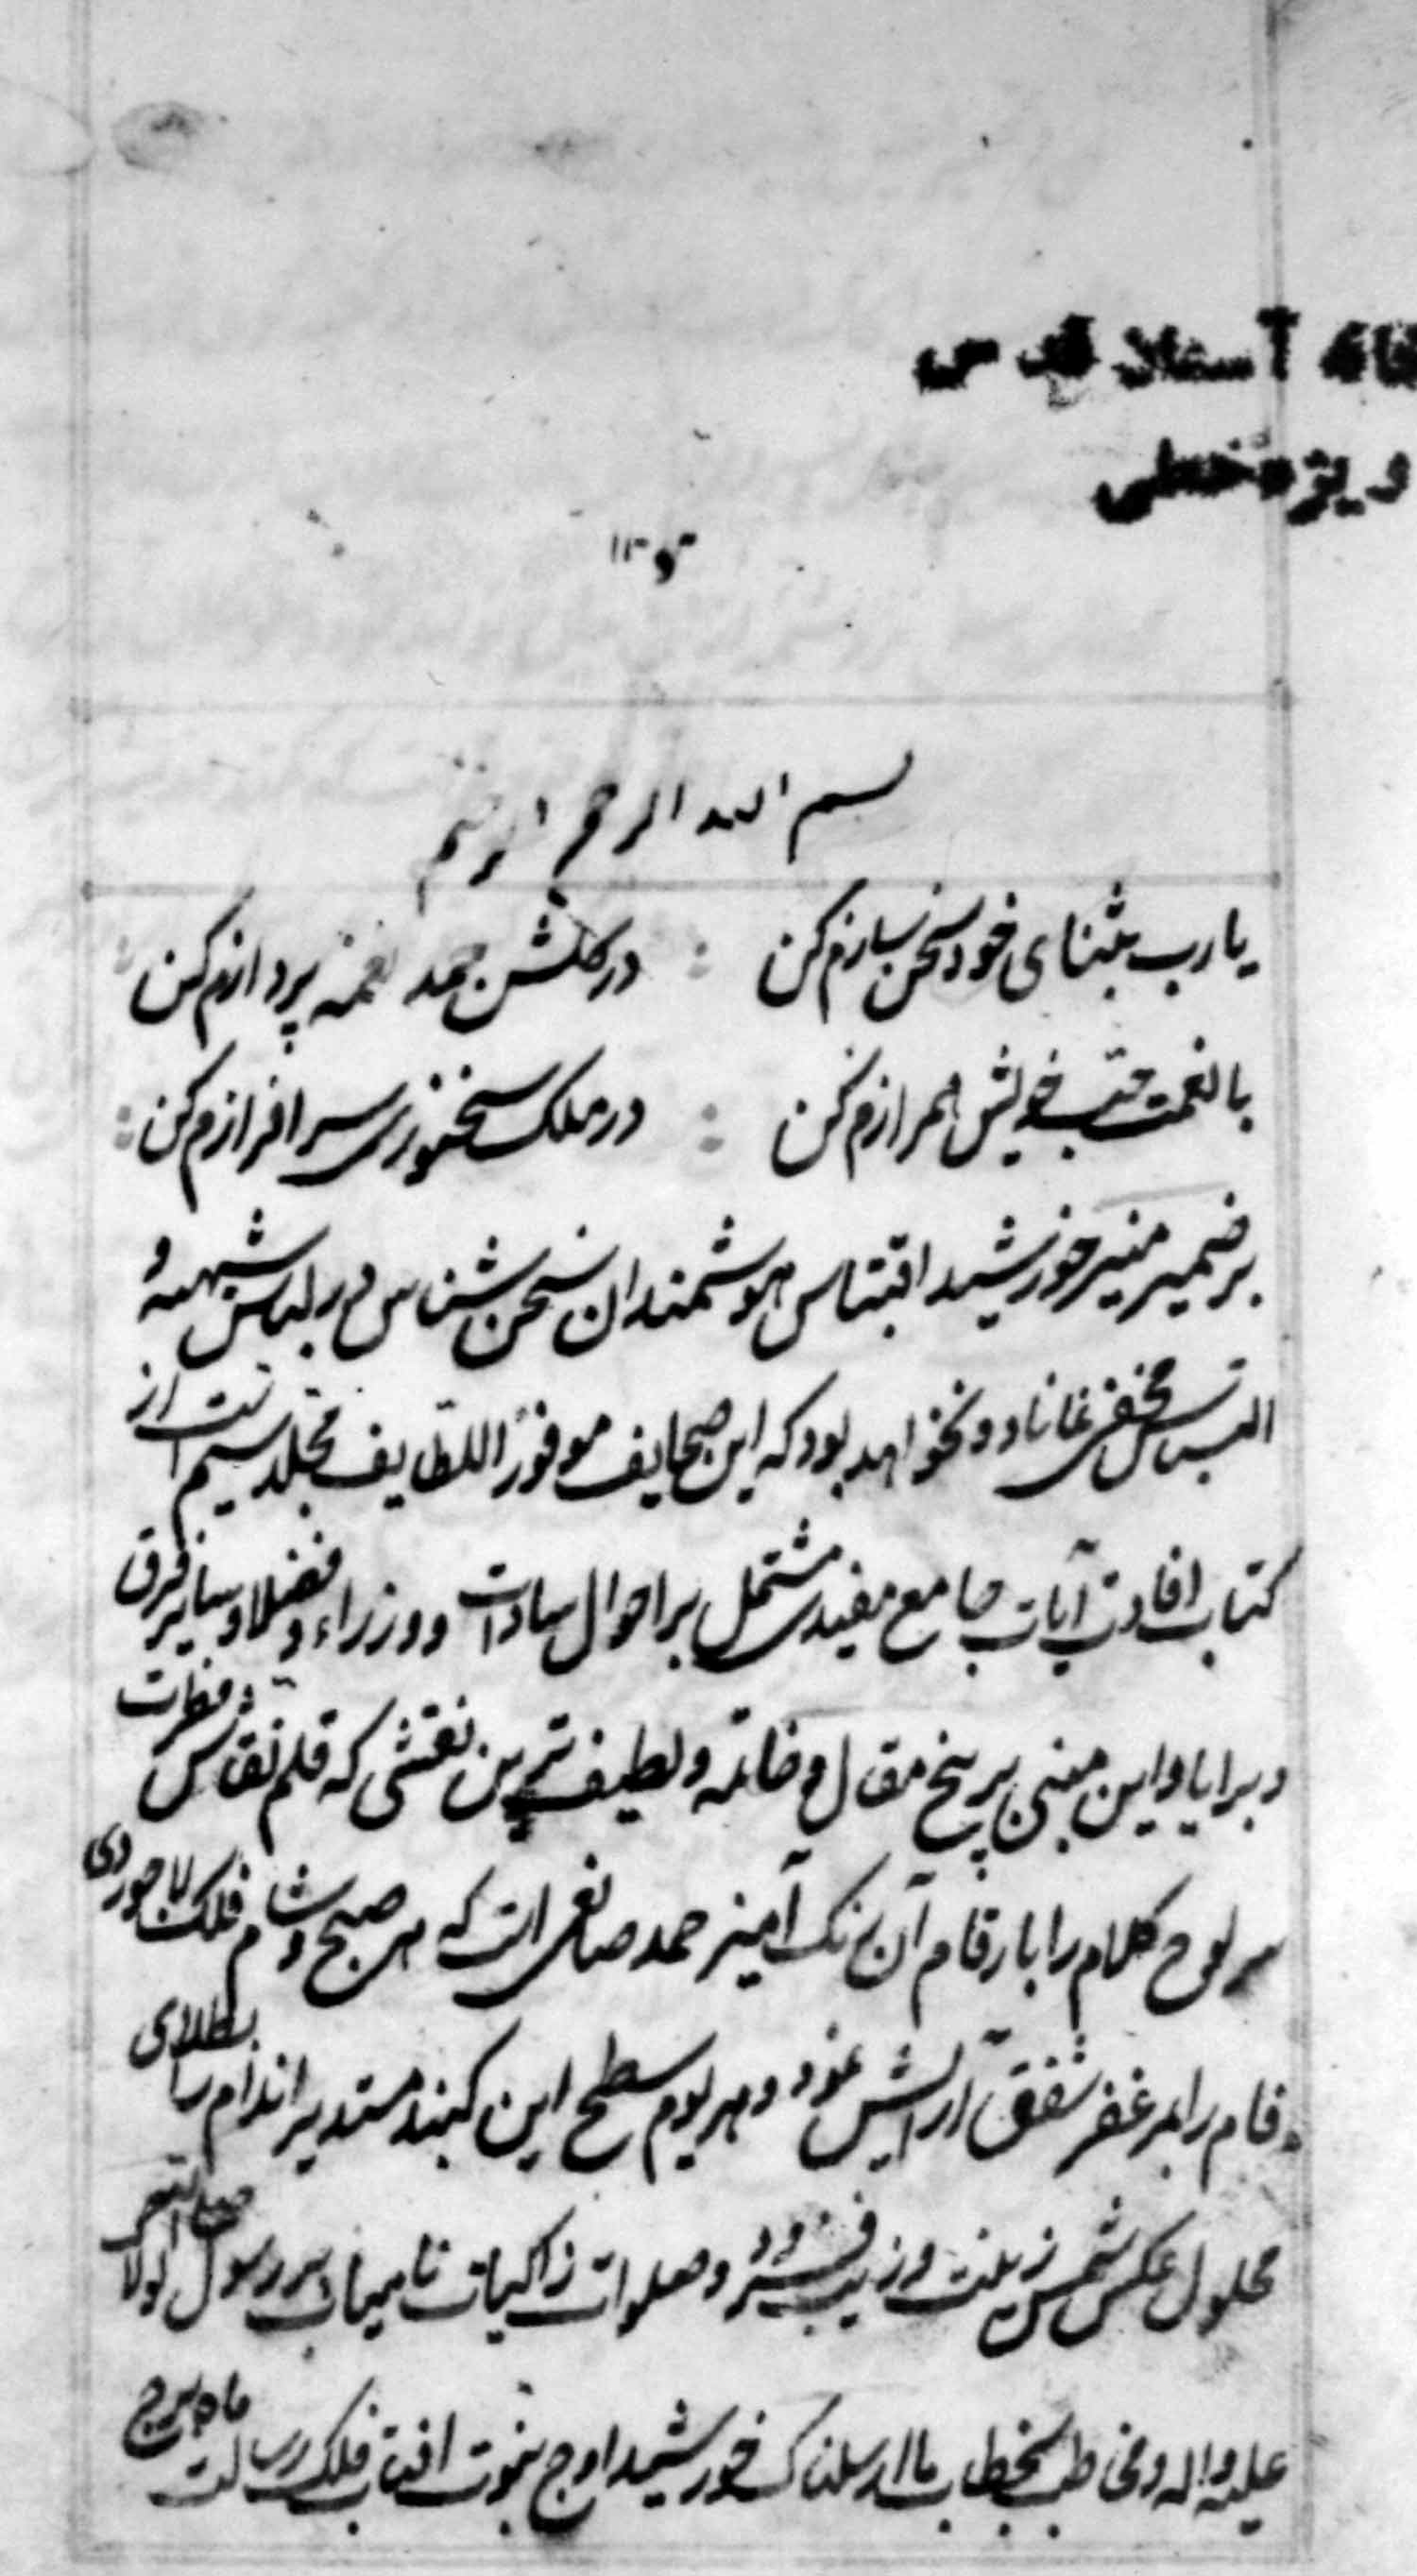 خانه آستان قدس
ویژه خطی
بسم الله الرحمن الرحیم
یارب بثنای خود سخن سازم کن : در گلشن حمد نغمه پردازم کن :
با نعمت حب خویش همرازم کن : در ملک سخنوری سرافرازم کن :
بر ضمیر منیر خورشید اقتباس هوشمندان سخن شناس در لباس شبهه و
التباس مخفی نماناد و نخواهد بود که این صحایف موفور اللطایف مجلد سیم است از
کتاب افادت آیات جامع مفیدی مشتمل بر احوال سادات و وزراء و فضلا و سایر فرق
و برایا و این مبنی بر پنج مقاله و خاتمه و لطیف ترین نقشی که قلم نقاش فطرت
سر لوح کلام را بارقام آن رنگ آمیز حمد صانعی است که هر صبح و شام فلک لاجوردی
فام را بزعفر شفق آرایش نمود و هر یوم سطح این گنبد مستدیر اندام را بطلای
محلول عکس شمس زینت و زیب افزود و صلوات زاکیات نامیات بر رسول
علیه و اله و مخاطب بخطاب ما ارسلناک خورشید اوج نبوت افتاب فلک رسالت ماه برج